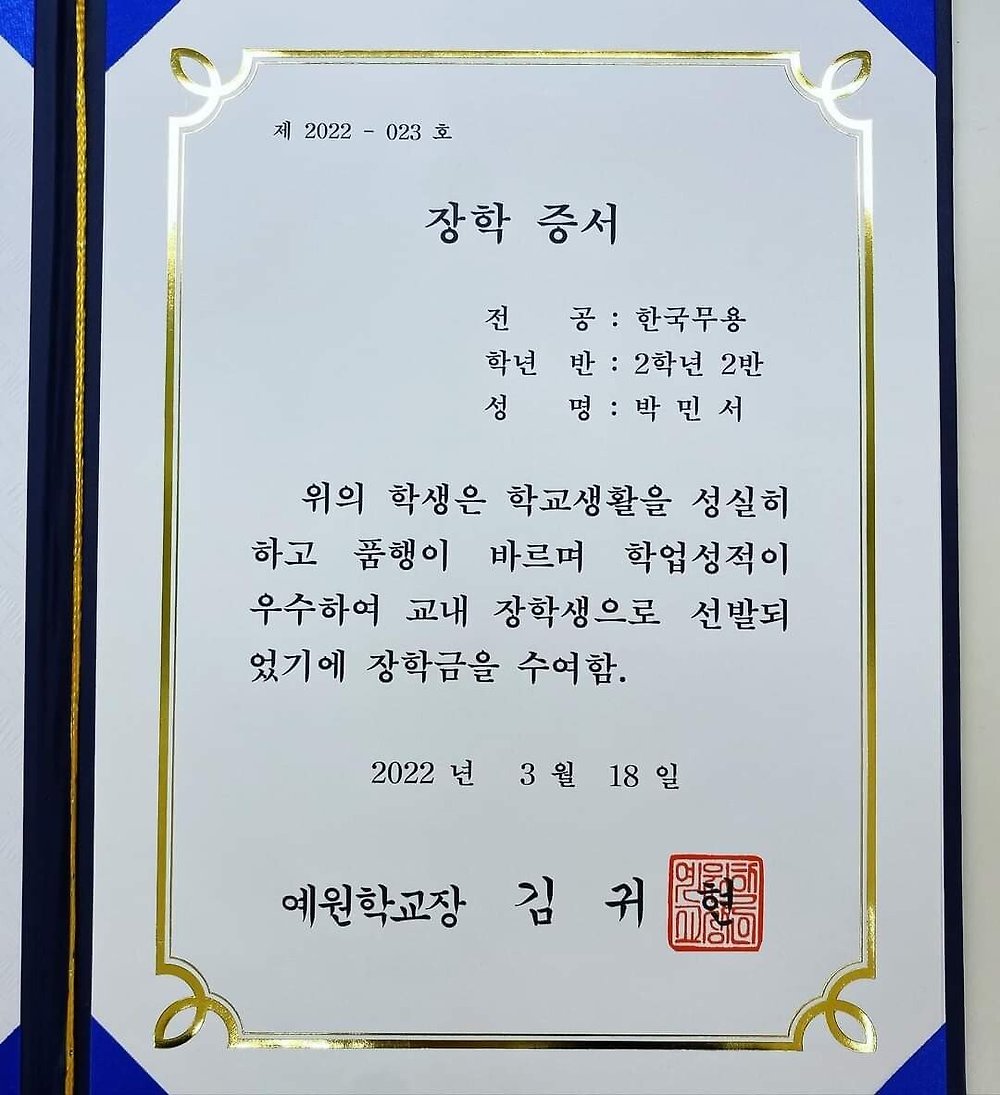 제 2022 - 023 호
장학 증서
전 공 : 한국무용
학년 반 : 2학년 2반
성 명 : 박 민 서
위의 학생은 학교생활을 성실히
하고 품행이 바르며 학업성적이
우수하여 교내 장학생으로 선발되
었기에 장학금을 수여함.
2022 년 3 월 18 일
예원학교장 김 귀 현
예원학
교장의